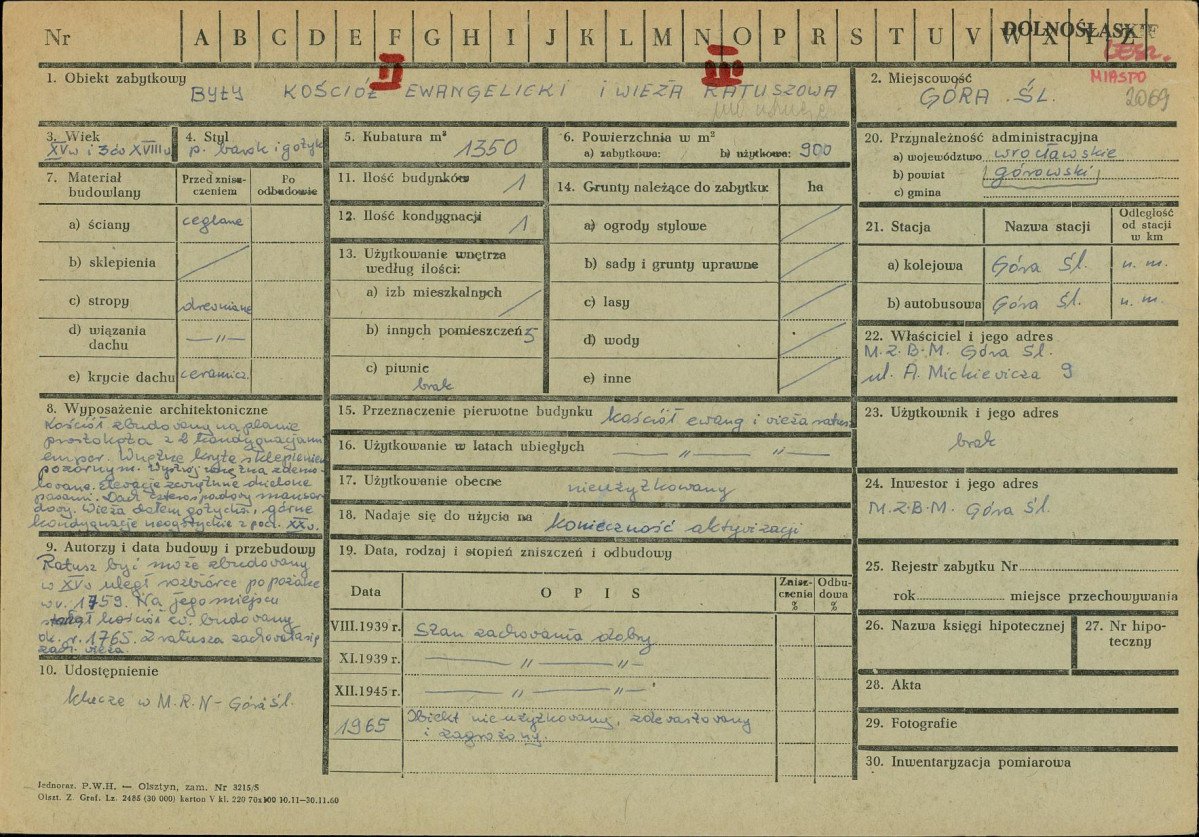 Nr A B C D E F G H I J K L M N O P R S T U V W X Y Z
DOLNOŚLĄSK
MIASPO
2069
1. Obiekt zabytkowy
BYŁY KOŚCIÓŁ EWANGELICKI I WIEŻA RATUSZOWA
2. Miejscowość
GÓRA ŚL.
3. Wiek
XVw i 3 ćw XVIIIw
4. Styl
p. barok i gotyk
5. Kubatura m³
1350
6. Powierzchnia w m²
a) zabytkowa: b) użytkowa: 900
7. Materiał budowlany
Przed znisz-
czeniem
Po
odbudowie
a) ściany ceglane
b) sklepienia
c) stropy drewniane
d) wiązania
dachu — " —
e) krycie dachu ceramicz.
8. Wyposażenie architektoniczne
Kościół zbudowany na planie
prostokąta z 2 kondygnacjami
empor. Wnętrze kryte sklepieniem
pozornym. Wystrój wnętrza zdemo-
lowany. Elewacje zewnętrzne dzielone
pasami. Dach czterospadowy mansar-
dowy. Wieża dołem gotycka, górne
kondygnacje neogotyckie z pocz. XXw.
9. Autorzy i data budowy i przebudowy
Ratusz być może zbudowany
w XVw uległ rozbiórce po pożarze
w r. 1759. Na jego miejscu
stanął kościół ew. budowany
ok. r. 1765. Z ratusza zachowała się
zach. wieża.
10. Udostępnienie
klucze w M.R.N - Góra Śl.
11. Ilość budynków 1
12. Ilość kondygnacji 1
13. Użytkowanie wnętrza
według ilości:
a) izb mieszkalnych
b) innych pomieszczeń 5
c) piwnic
brak
14. Grunty należące do zabytku: ha
a) ogrody stylowe
b) sady i grunty uprawne
c) lasy
d) wody
e) inne
15. Przeznaczenie pierwotne budynku kościół ewang i wieża ratusz
16. Użytkowanie w latach ubiegłych — " — " —
17. Użytkowanie obecne nieużytkowany
18. Nadaje się do użycia na konieczność aktywizacji
19. Data, rodzaj i stopień zniszczeń i odbudowy
Data
O P I S
Znisz-
czenia
%
Odbu-
dowa
%
VIII.1939 r. Stan zachowania dobry
XI.1939 r. — " — " —
XII.1945 r. — " — " —
1965 Obiekt nieużytkowany, zdewastowany
i zagrożony.
20. Przynależność administracyjna
a) województwo wrocławskie
b) powiat górowski
c) gmina
21. Stacja
Nazwa stacji
Odległość
od stacji
w km
a) kolejowa Góra Śl. n. m.
b) autobusowa Góra Śl. n. m.
22. Właściciel i jego adres
M.Z.B.M. Góra Śl.
ul. A. Mickiewicza 9
23. Użytkownik i jego adres
brak
24. Inwestor i jego adres
M.Z.B.M. Góra Śl.
25. Rejestr zabytku Nr
rok miejsce przechowywania
26. Nazwa księgi hipotecznej
27. Nr hipo-
teczny
28. Akta
29. Fotografie
30. Inwentaryzacja pomiarowa
Jednoraz. P.W.H. — Olsztyn, zam. Nr 3215/S
Olszt. Z Graf. Lz. 2485 (30 000) karton V kl. 220 70x100 10.11—30.11.60